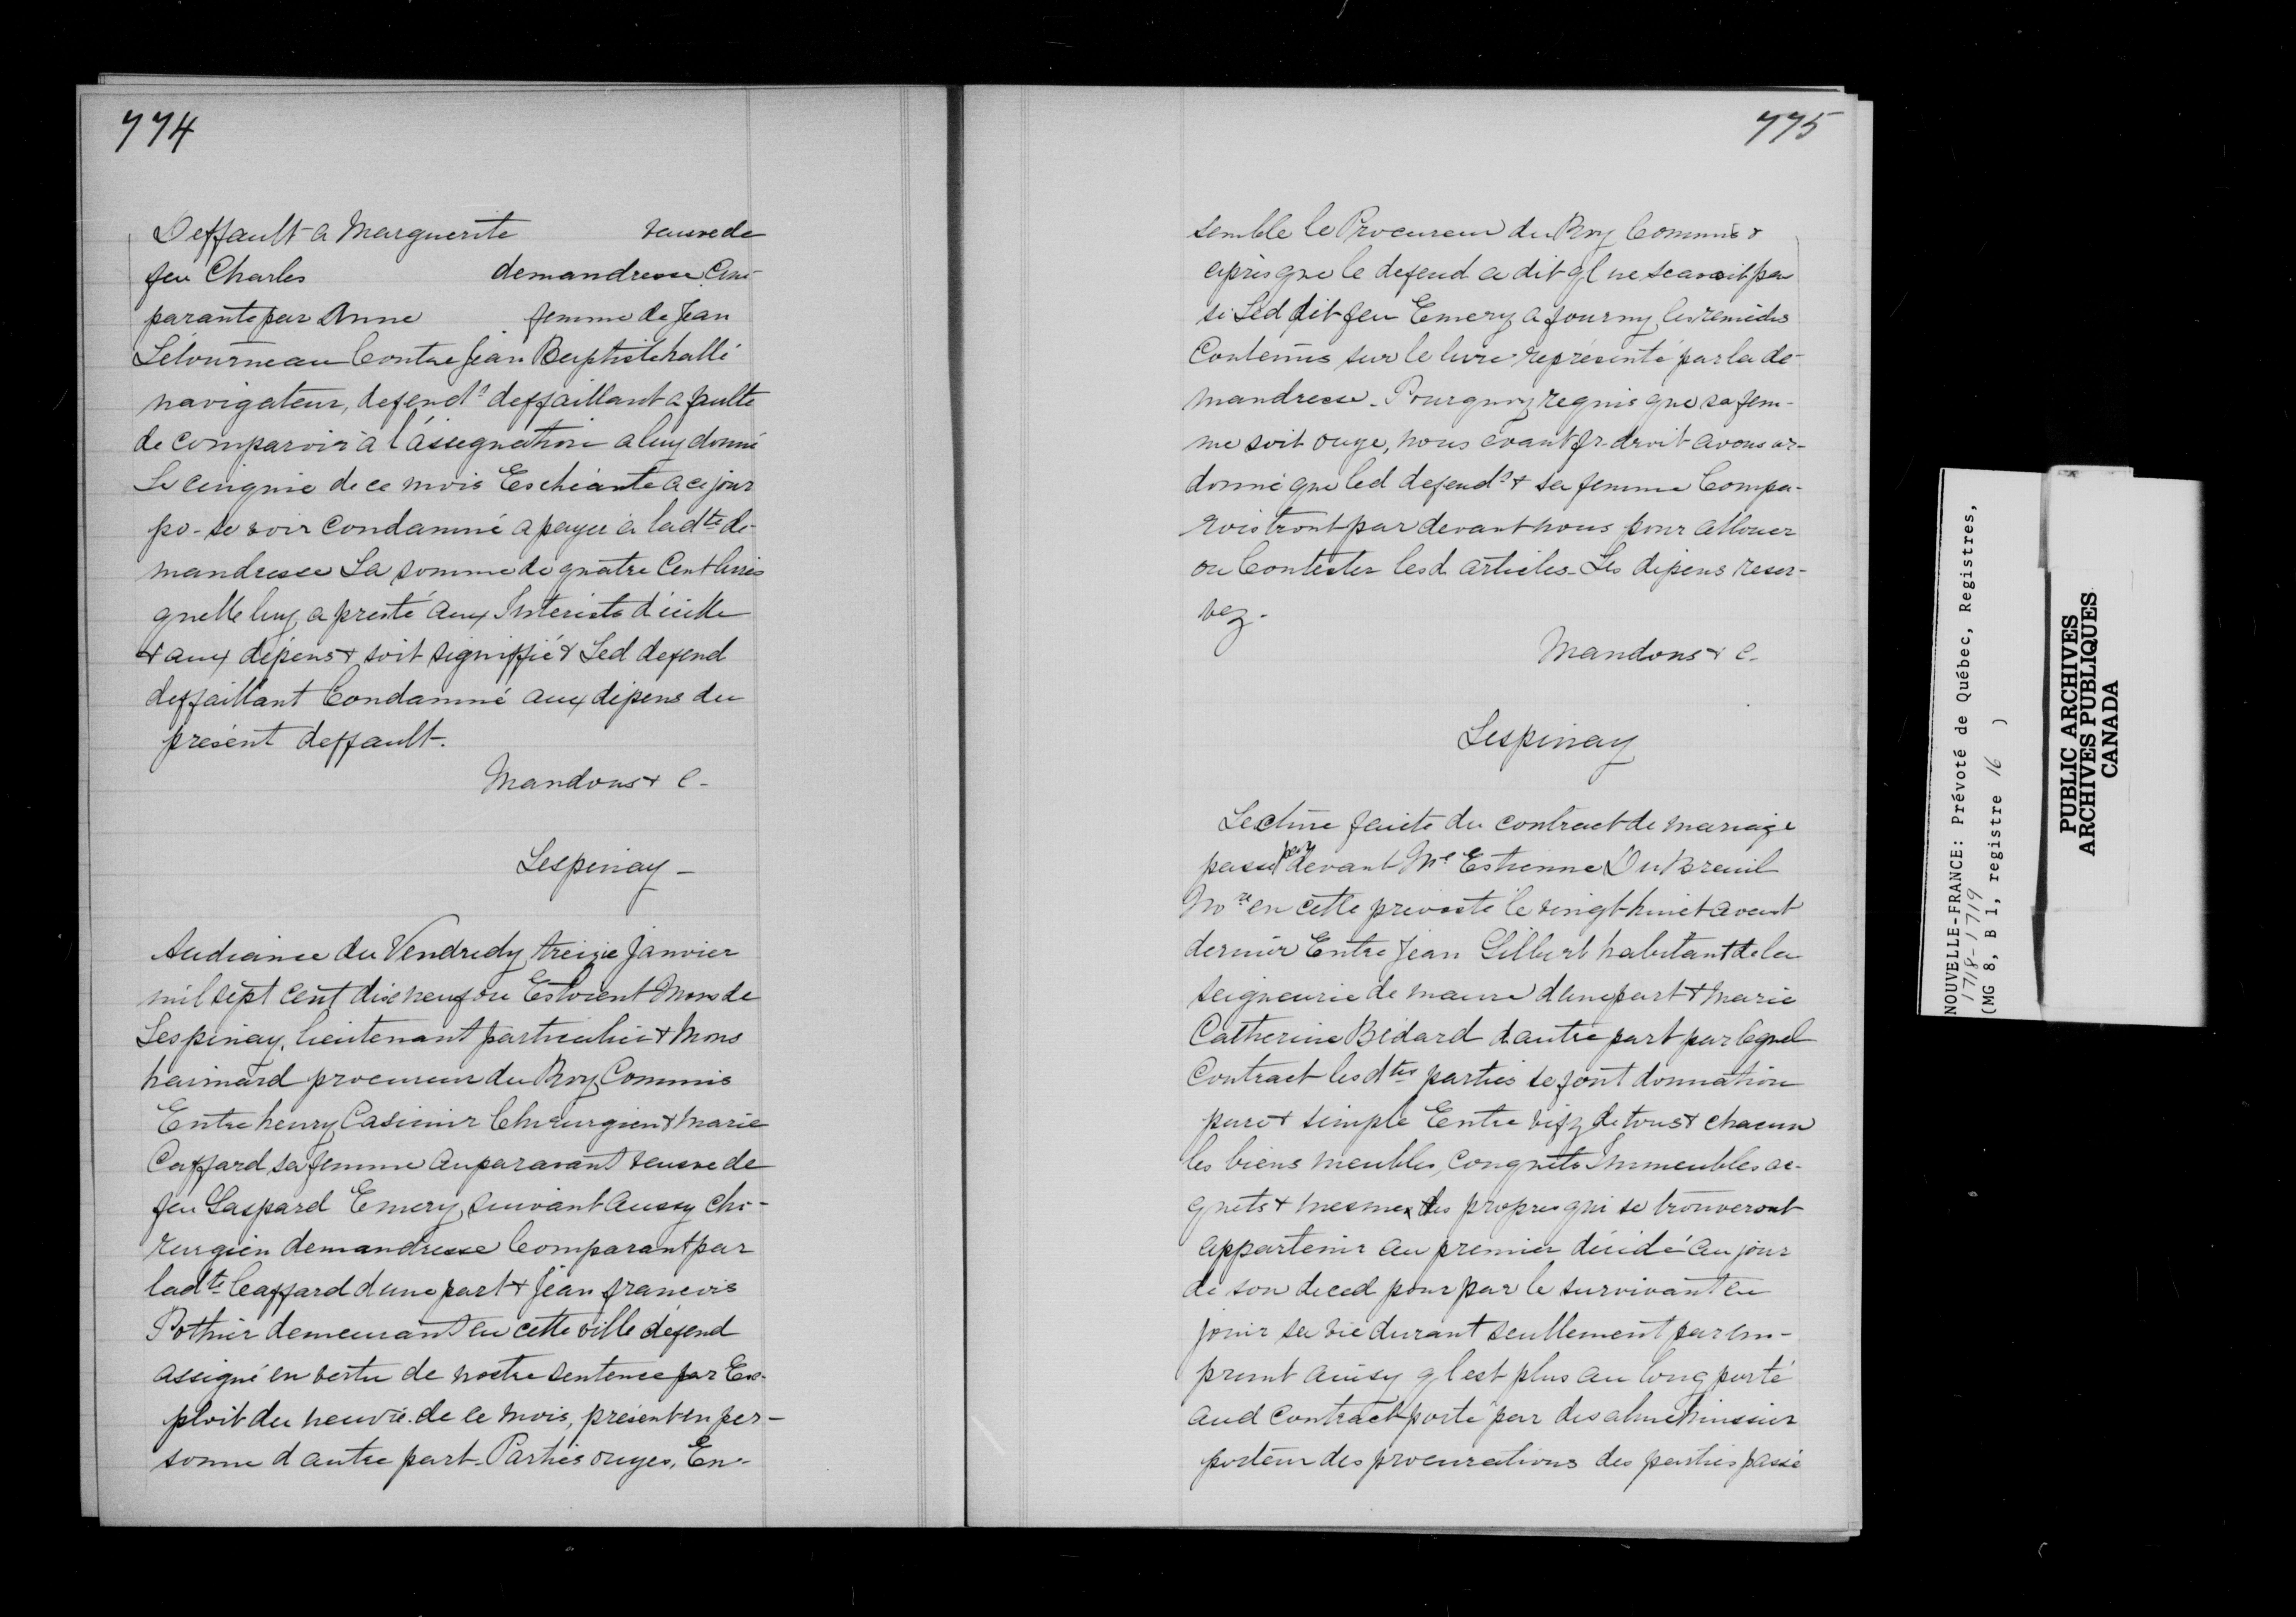 774
Deffault a Marguerite veusve de
feu Charles demandresse Com-
parante par Anne femme de Jean
Létourneau Contre Jean Baptiste hallé
navigateur, defendr deffaillant a faulte
de comparoir à l'assegnation a luy donné
Le cinqme de ce mois Eschéante a ce jour
po- se voir Condamné a payer à ladte de-
mandresse La somme de quatre Cent livres
quelle luy a presté aux Interests d'icelle
& aux dépens & soit signiffié & Led defend
deffaillant Condamné aux dépens du
présent deffault.
Mandons & C-
Lespinay -
Audiance du Vendredy treizie Janvier
mil sept cent dix neuf ou Estoient Mons de
Lespinay, lieutenant particulier & Mons
haimard procureur du Roy Commis
Entre henry Casimir Chirurgien & Marie
Caffard sa femme auparavant veusve de
feu Gaspard Emery, suivant aussy chi-
rurgien demandresse Comparant par
ladte Caffard d'une part & Jean francois
Pothier demeurant en cette ville défend
assigné en vertu de nostre sentence par Ex-
ploit du neuvie. de ce mois, présent en per-
sonne d'autre part. Parties ouyes, En-
775
semble le Procureur du Roy Commis &
après que le defend a dit ql ne scavoit pas
si Led dit feu Emery a fourny les remèdes
Contenus sur le livre représenté par la de-
mandresse. Pourquoy requis que sa fem-
me soit ouye, nous avant fr. droit avons or-
donné que led defendr & sa femme Compa-
roistront par devant nous pour allouer
ou Contester lesd articles. Les dépens reser-
vez.
Mandons & C-
Lespinay
Lecture faicte du contract de mariage
passé par devant Me Estienne Du breuil
Nore en cette prévosté le vingt huict aoust
dernier Entre Jean Gilbert habitant de la
seigneurie de maure d'une part & Marie
Catherine Bédard d'autre part par lequel
Contract lesdtes parties se font donnation
pure & simple Entre vifz de tous & chacun
les biens meubles, conquets Immeubles ac-
quets & mesmes des propres qui se trouveront
appartenir au premier décédé au jour
de son deced pour par le survivant en
jouir sa vie durant seullement par em-
prunt ainsy ql est plus au long porté
aud Contract porté par desaline huissier
porteur des procurations des parties passé
NOUVELLE-FRANCE: Prévoté de Québec, Registres,
1718-1719
(MG 8, B 1, registre 16 )
PUBLIC ARCHIVES
ARCHIVES PUBLIQUES
CANADA